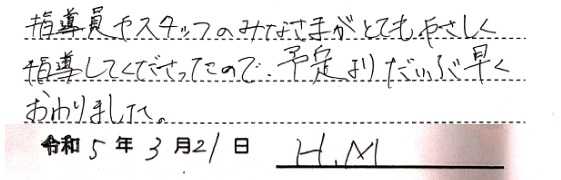 指導員やスタッフのみなさまがとてもやさしく
指導してくださったので、予定よりだいぶ早く
おわりました。
令和5年3月21日 H.M